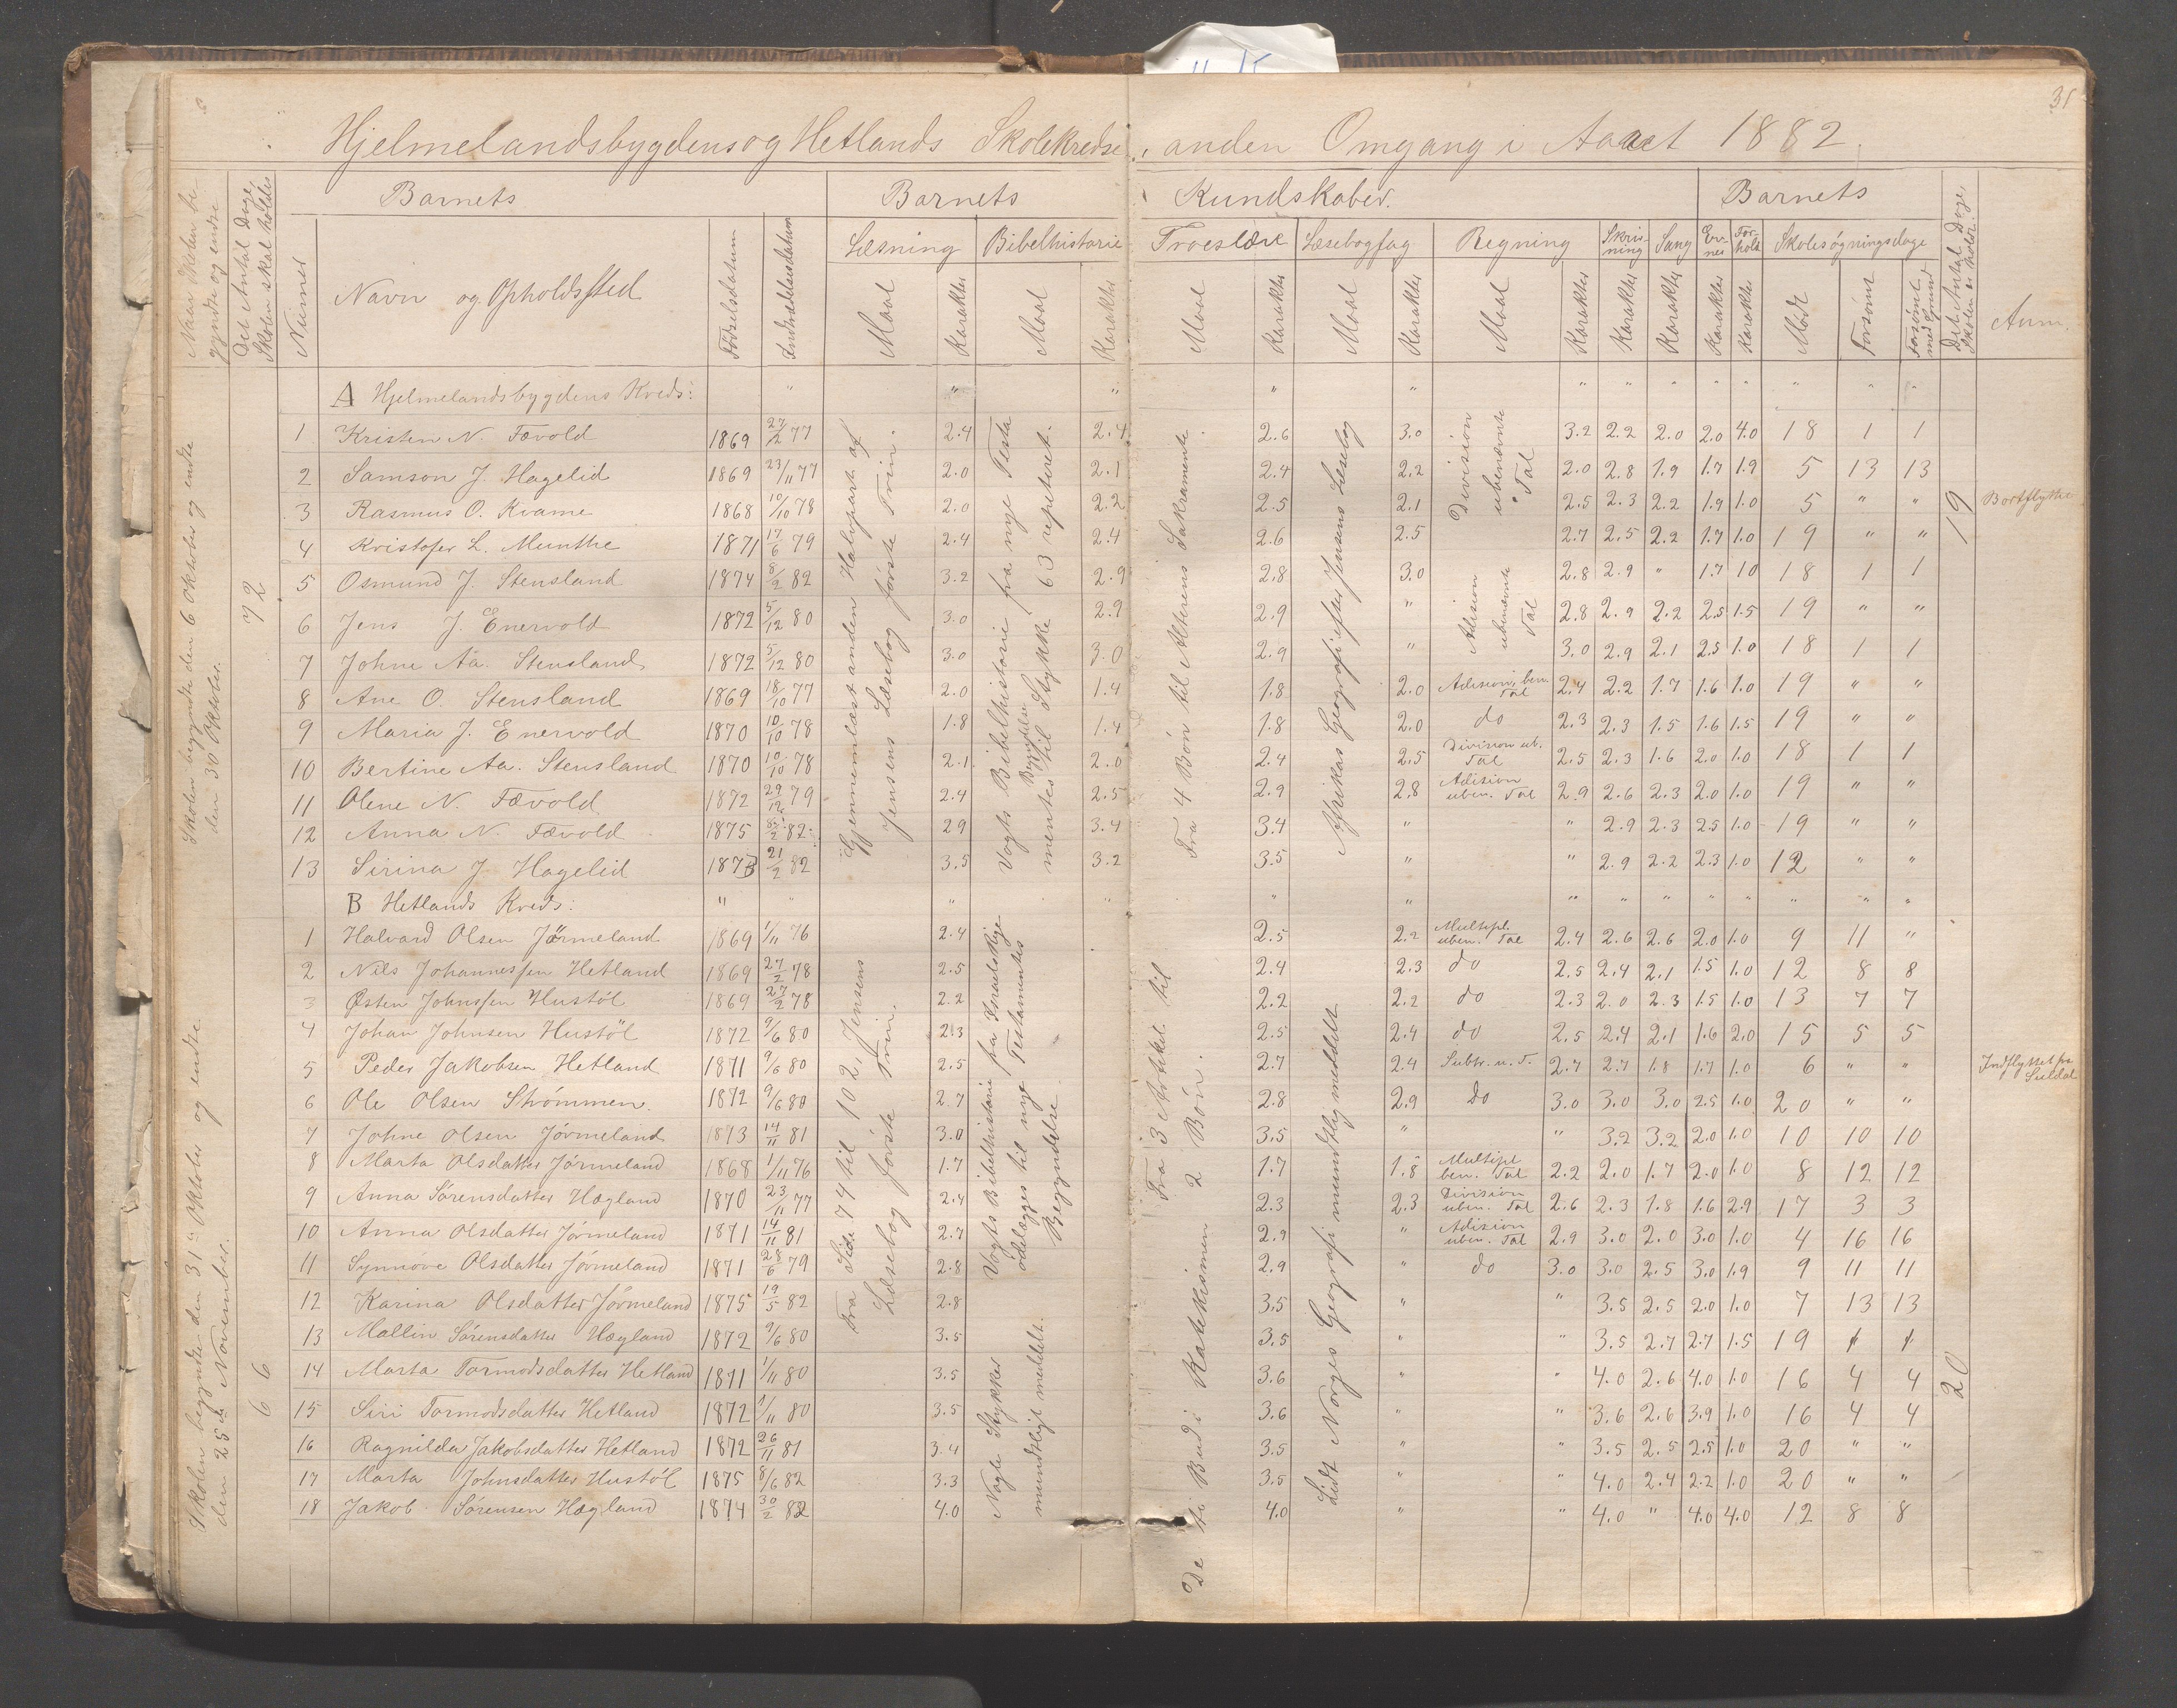 31
Hjelmelandsbygdens og Hetlands Skolekredse, anden Omgang i Aaret 1882.
Naar Skolen begyndte og endte
Det Antal Dage Skolen skal holdes
Barnets
Nummer
Navn og Opholdssted
Fødselsdatum
Indtrædelsesdatum
Barnets Kundskaber.
Læsning Bibelhistorie Troeslære Læsebogfag Regning Skrivning Sang Evner Forhold
Maal Karakter Maal Karakter Maal Karakter Maal Karakter Maal Karakter Karakter Karakter Karakter Karakter
Barnets
Skolesøgningsdage
Mødt Forsømt Forsømt med Grund
Det Antal Dage Skolen er holdt
Anm.
Skolen begyndte den 6 Oktober og endte den 30 Oktober.
72
A Hjelmelandsbygdens Kreds: " " " " " " " " " " " " "
1 Kristen N. Fævold 1869 27/2 77 2.4 2.4 2.6 3.0 3.2 2.2 2.0 2.0 4.0 18 1 1
2 Samson J. Hagelid 1869 23/11 77 2.0 2.1 2.4 2.2 2.0 2.8 1.9 1.7 1.9 5 13 13
3 Rasmus O. Kvame 1868 10/10 78 2.0 2.2 2.5 2.1 2.5 2.3 2.2 1.9 1.0 5 " " Bortflyttet
4 Kristofer L. Munthe 1871 17/6 79 2.4 2.4 2.6 2.5 2.7 2.5 2.2 1.7 1.0 19 " "
5 Osmund J. Stensland 1874 8/2 82 3.2 2.9 2.8 3.0 2.8 2.9 " 1.7 10 18 1 1
6 Jens J. Enervold 1872 5/12 80 3.0 2.9 2.9 " 2.8 2.9 2.2 2.5 1.5 19 " "
7 Johne Aa. Stensland 1872 5/12 80 3.0 3.0 2.9 " 3.0 2.9 2.1 2.5 1.0 18 1 1
8 Ane O. Stensland 1869 18/10 77 2.0 1.4 1.8 2.0 Adision, ben. Tal 2.4 2.2 1.7 1.6 1.0 19 " "
9 Maria J. Enervold 1870 10/10 78 1.8 1.4 1.8 2.0 do 2.3 2.3 1.5 1.6 1.5 19 " "
10 Bertine Aa. Stensland 1870 10/10 78 2.1 2.0 2.4 2.5 Division ub. Tal 2.5 2.3 1.6 2.0 1.0 18 1 1
11 Olene N. Fævold 1872 29/12 79 2.4 2.5 2.9 2.8 Adision uben. Tal 2.9 2.6 2.3 2.0 1.0 19 " "
12 Anna N. Fævold 1875 8/2 82 29 3.4 3.4 " " 2.9 2.3 2.5 1.0 19 " "
13 Sirina J. Hagelid 1873 21/2 82 3.5 3.2 3.5 " " 2.9 2.2 2.3 1.0 12 " "
Gjennemlæst anden Halvpart af Jensens Læsebog første Trin.
Vogts Bibelhistorie fra nye Testamentes Begyndelse til Stykke 63 repeteret.
Fra 4 Bøn til Alterens Sakramente.
Afrikas Geografi efter Jensens Læsebog
Division ubenævnte Tal
Adision ubenævnte Tal
19
Skolen begyndte den 31te Oktober og endte den 25de November.
66
B Hetlands Kreds: " " " " " " " " " " " " " "
1 Halvard Olsen Jörmeland 1869 1/11 76 2.4 2.5 2.2 Multipl. uben. Tal 2.4 2.6 2.6 2.0 1.0 9 11 "
2 Nils Johannessen Hetland 1869 27/2 78 2.5 2.4 2.3 do 2.5 2.4 2.1 1.5 1.0 12 8 8
3 Østen Johnssen Hustöl 1869 27/2 78 2.2 2.2 2.2 do 2.3 2.0 2.3 1.5 1.0 13 7 7
4 Johan Johnsen Hustöl 1872 9/6 80 2.3 2.5 2.4 do 2.5 2.4 2.1 1.6 2.0 15 5 5
5 Peder Jakobsen Hetland 1871 9/6 80 2.5 2.7 2.4 Subtr. u. T. 2.7 2.7 1.8 1.7 1.0 6 " " Indflyttet fra Suldal
6 Ole Olsen Strömmen. 1872 9/6 80 2.7 2.8 2.9 do 3.0 3.0 3.0 2.5 1.0 20 " "
7 Johne Olsen Jörmeland 1873 14/11 81 3.0 3.5 " " 3.2 3.2 2.0 1.0 10 10 10
8 Marta Olsdatter Jörmeland 1868 1/11 76 1.7 1.7 1.8 Multipl ben. Tal 2.2 2.0 1.7 2.0 1.0 8 12 12
9 Anna Sörensdatter Hægland 1870 23/11 77 2.4 2.3 2.3 Division uben. Tal 2.6 2.3 1.8 1.6 2.9 17 3 3
10 Anna Olsdatter Jörmeland 1871 14/11 81 2.7 2.9 " Adision uben. Tal 2.9 3.0 2.0 3.0 1.0 4 16 16
11 Synnöve Olsdatter Jörmeland 1871 28/6 79 2.8 2.9 " do 3.0 3.0 2.5 3.0 1.9 9 11 11
12 Karina Olsdatter Jörmeland 1875 19/5 82 2.8 3.5 " " 3.5 2.5 2.0 1.0 7 13 13
13 Mallin Sörensdatter Hægland 1872 9/6 80 3.5 3.5 " " 3.5 2.7 2.7 1.5 19 1 1
14 Marta Tormodsdatter Hetland 1871 1/11 80 3.5 3.6 " " 4.0 2.6 4.0 1.0 16 4 4
15 Siri Tormodsdatter Hetland 1872 1/11 80 3.5 3.6 " " 3.6 2.6 3.9 1.0 16 4 4
16 Ragnilda Jakobsdatter Hetland 1872 26/11 81 3.4 3.5 " " 3.5 2.5 2.5 1.0 20 " "
17 Marta Johnsdatter Hustöl 1875 8/6 82 3.3 3.5 " " 4.0 2.4 2.2 1.0 20 " "
18 Jakob Sörensen Hægland 1874 30/2 82 4.0 4.0 " " 4.0 " 4.0 4.0 12 8 8
Fra Side 74 til 102, Jensens Læsebog første Trin.
Vogts Bibelhistorie fra Israels Rige ødelægges til nye Testamentes Begyndelse.
Nogle Stykker mundtligt meddelt.
Fra 3 Artikel til 2 Bøn.
De ti Bud i Katekismen
Lidt Norges Geografi mundtlig meddelt
20